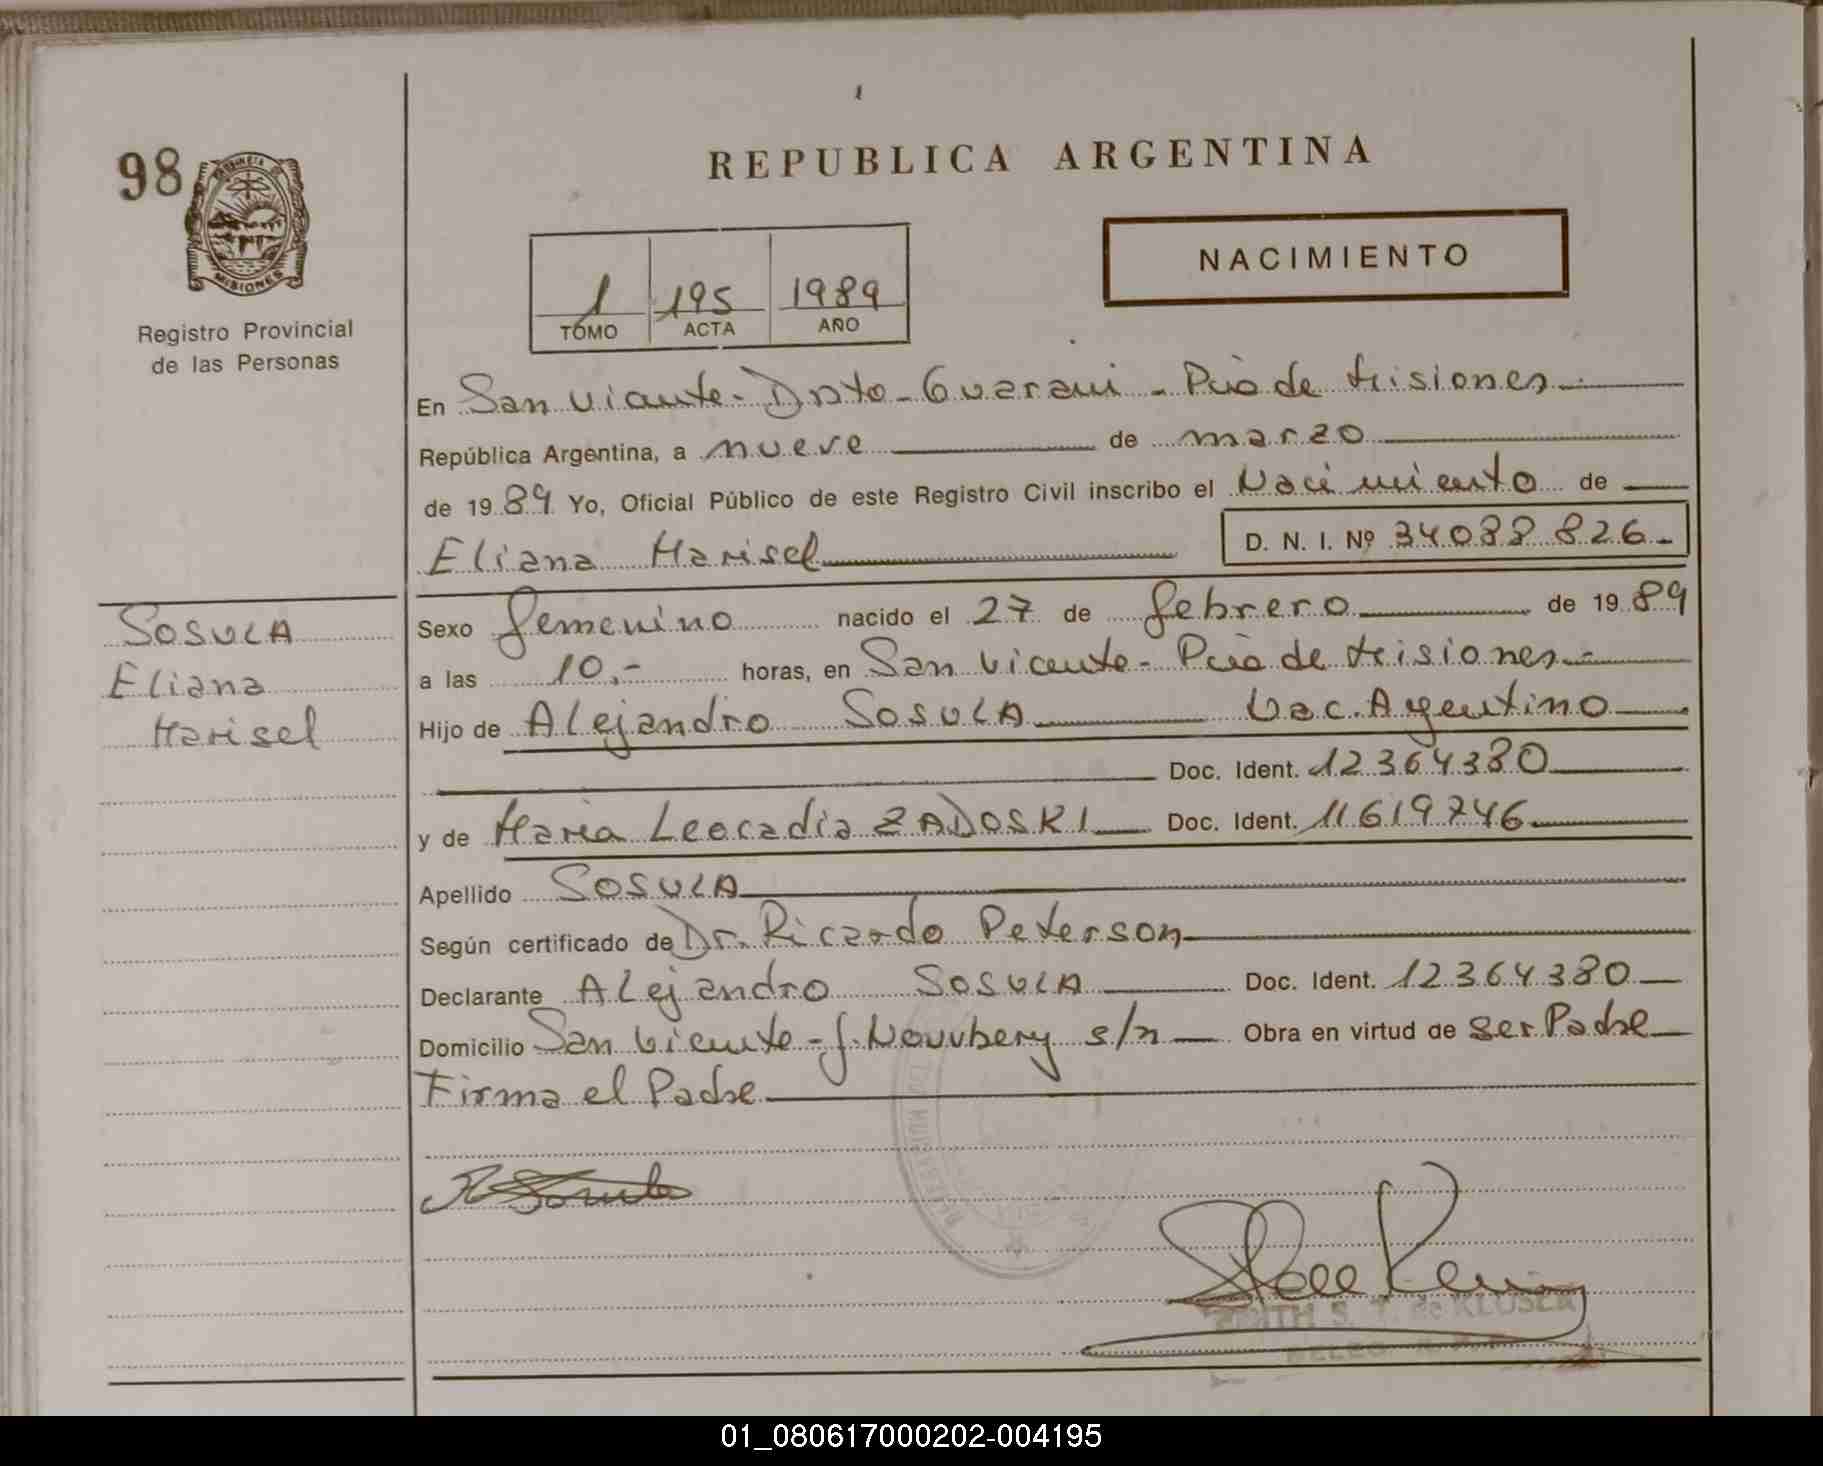 98
REPUBLICA ARGENTINA
MISIONES
Registro Provincial
de las Personas
1 195 1989
TOMO ACTA AÑO
NACIMIENTO
En San Vicente - Dpto - Guarani - Pcia de Misiones -
República Argentina, a nueve de marzo
de 1989 Yo, Oficial Público de este Registro Civil inscribo el Nacimiento de
Eliana Marisel D. N. I. Nº 34088826.-
SOSULA
Eliana
Marisel
Sexo femenino nacido el 27 de febrero de 1989
a las 10.- horas, en San Vicente - Pcia de Misiones -
Hijo de Alejandro SOSULA Nac. Argentino
Doc. Ident. 12364380
y de Maria Leocadia ZADOSKI Doc. Ident. 11619746
Apellido SOSULA
Según certificado de Dr. Ricardo Peterson
Declarante Alejandro SOSULA Doc. Ident. 12364380
Domicilio San Vicente - J. Newbery s/n Obra en virtud de ser Padre
Firma el Padre
EDITH S. T. de KLUSER
01_080617000202-004195